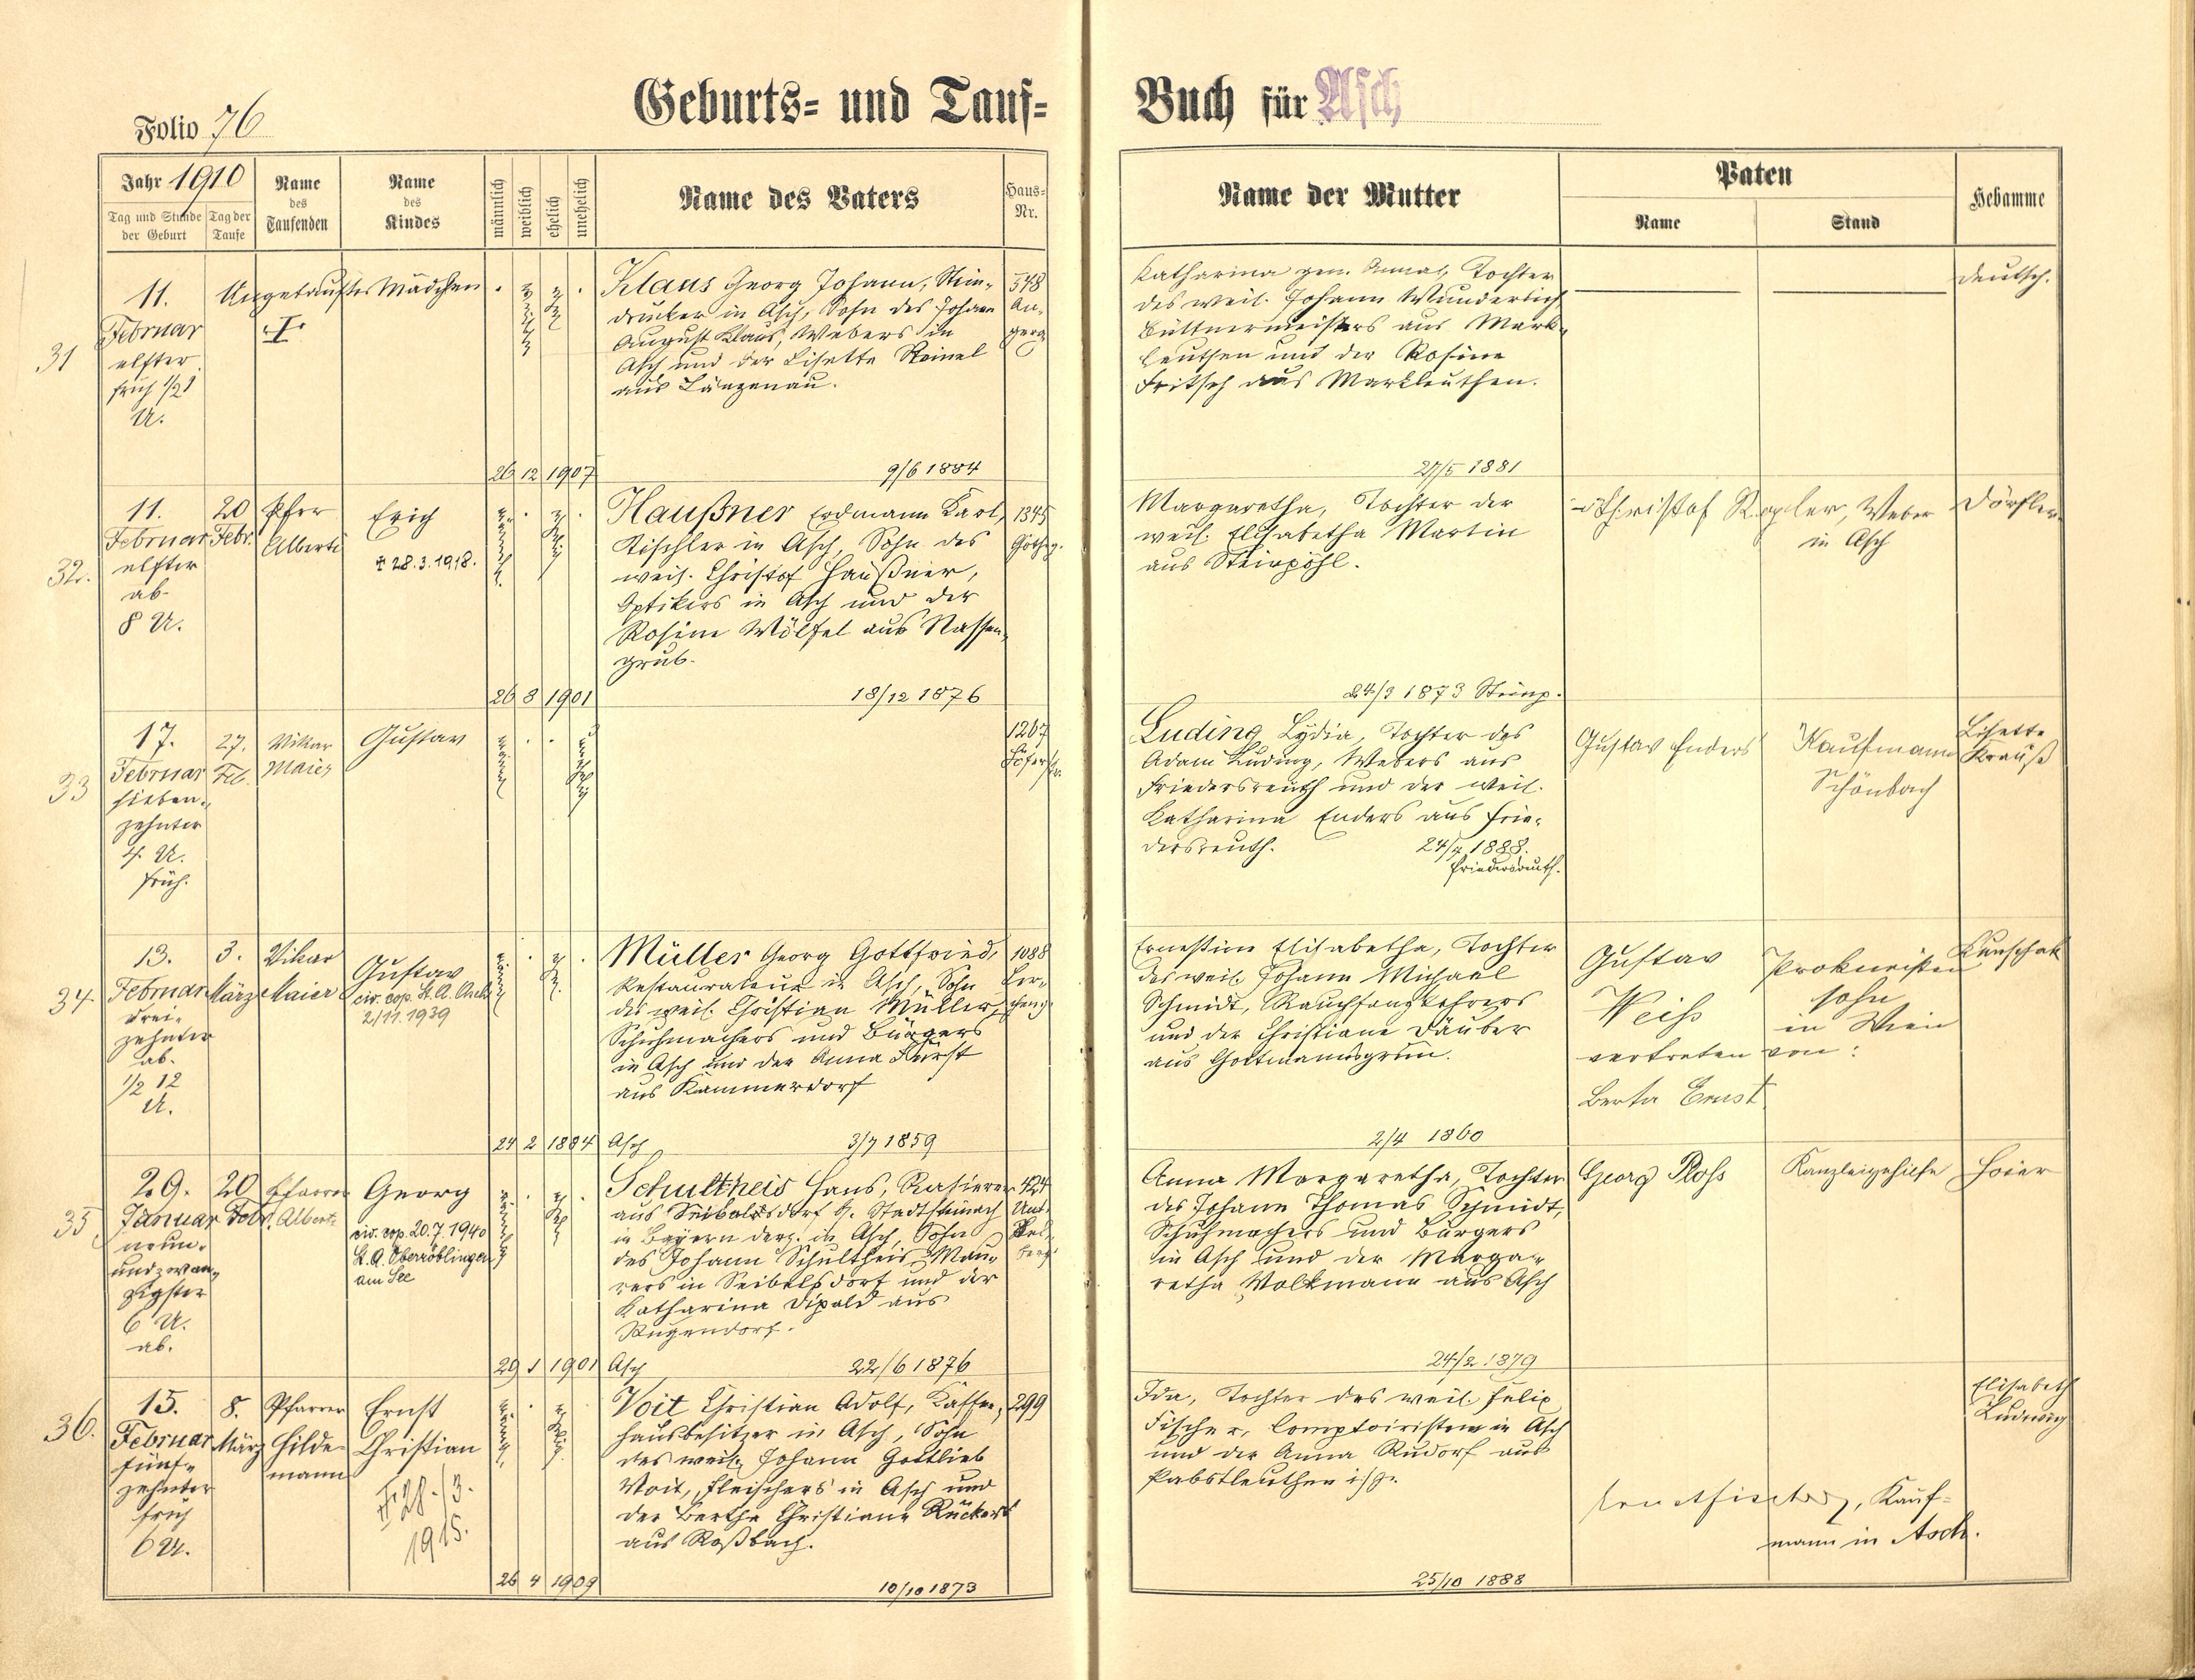 Folio 76
Geburts- und Tauf-
Buch für Asch
Jahr 1910
Tag und Stunde der Geburt
Tag der Taufe
Name des Taufenden
Name des Kindes
männlich
weiblich
ehelich
unehelich
Name des Vaters
Haus-Nr.
Name der Mutter
Paten
Name
Stand
Hebamme
31
11.
Februar
elfter
früh 1/2
U.
Ungetauftes Mädchen
Klaus Georg Johann, Stein-
drucker in Asch, Sohn des Johann
August Klaus, Webers in
Asch und der Lisette Steinel
aus Längenau.
548
An-
gerg
26 12 1907
9/6 1884
Katharina gen. Anna, Tochter
des weil. Johann Wunderlich
Büttnermeisters aus Mark-
leuthen und der Rosine
Fritsch aus Markleuthen.
27/5 1881
Deutsch.
32.
11.
Februar
elfter
ab.
8 U.
20
Febr.
Pfrr
Alberti
Erich
+ 28.3.1918.
Haußner Erdmann Karl,
Tischler in Asch, Sohn des
weil. Christof Haußner,
Optikers in Asch und der
Rosine Wölfel aus Nassen-
grub.
1345
Götheg.
26 8 1901
18/12 1876
Margaretha, Tochter der
weil. Elisabetha Martin
aus Steinpöhl.
24/3 1873 Steinp.
Christof Weber
in Asch
Dörfler
33
17.
Februar
sieben-
zehnter
4 U.
früh.
27.
Feb.
Vikar
Maier
Gustav
1267
Luding Lydia, Tochter des
Adam Luding, Webers aus
Friedersreuth und der weil.
Katharina Enders aus Frie-
dersreuth.
24/7 1888.
Friedersreuth.
Gustav Enders
Kaufmann
Schönbach
Lisette
Krauß
34.
13.
Februar
drei-
zehnter
ab.
1/2 12
U.
3.
März
Vikar
Maier
Gustav
civ. cop. St. A.
2/11. 1939
Müller Georg Gottfried,
Restaurateur in Asch, Sohn
des weil. Christian Müller,
Schuhmachers und Bürgers
in Asch und der Anna Fürst
aus Kammerdorf
1088
Ler-
cheng
24 2 1884
Asch
3/7 1859
Ernestine Elisabetha, Tochter
des weil. Johann Michael
Schmidt, Rauchfangkehrers
und der Christiane Däuber
aus Gottmannsgrün.
2/4 1860
Gustav
Weiss
vertreten von:
Berta Ernst
Prokuristen
sohn
in Wien
Künschat
35
29.
Januar
neun-
undzwan-
zigster
6 U.
ab.
20
Febr.
Pfarrer
Alberti
Georg
civ. cop. 20.7.1940
St. A. Oberröblingen
am See
Schultheis Hans, Rasierer
aus Seibelsdorf G. Stadtsteinach
in Bayern derz. in Asch, Sohn
des Johann Schultheis, Mau-
rers in Seibelsdorf und der
Katharina Dipold aus
Rugendorf.
424
29 1 1901
Asch
22/6 1876
Anna Margaretha, Tochter
des Johann Thomas Schmidt,
Schuhmachers und Bürgers
in Asch und der Marga-
retha Wolkmann aus Asch
24/2 1879
Georg Ploss
Kanzleigehilfe
Hoier
36.
15.
Februar
fünf-
zehnter
früh
6 U.
8.
März
Pfarrer
Hilde-
mann
Ernst
Christian
+ 28./3.
1915.
Voit Christian Adolf, Kaffee-
hausbesitzer in Asch, Sohn
des weil. Johann Gottlieb
Voit, Fleischers in Asch und
der Bertha Christiane Rückert
aus Roßbach.
299
26 4 1909
10/10 1873
Ida, Tochter des weil. Felix
Fischer, Comptoiristen in Asch
und der Anna Rudorf aus
Pabstleuthen i/S.
25/10 1888
Ernst Fischer, Kauf-
mann in Asch.
Elisabeth
Ludwig